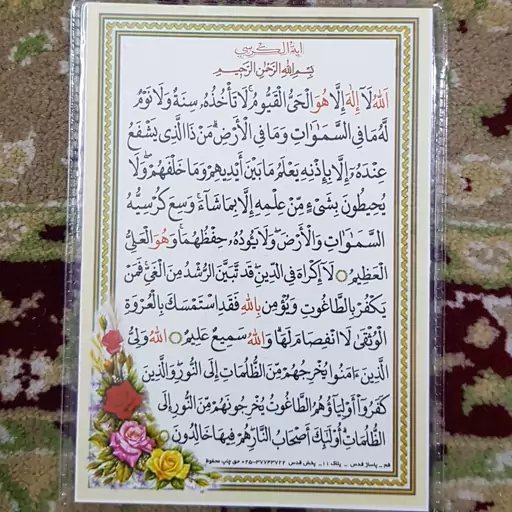 آیة الکرسي
بِسْمِ اللهِ الرَّحْمٰنِ الرَّحیمِ
اَللهُ لَا إِلٰهَ إِلَّا هُوَ الْحَيُّ الْقَيُّومُ لَا تَأْخُذُهُ سِنَةٌ وَلَا نَوْمٌ
لَّهُ مَا فِي السَّمٰوَاتِ وَمَا فِي الْأَرْضِ مَنْ ذَا الَّذِي يَشْفَعُ
عِنْدَهُ إِلَّا بِإِذْنِهِ يَعْلَمُ مَا بَيْنَ أَيْدِيهِمْ وَمَا خَلْفَهُمْ وَلَا
يُحِيطُونَ بِشَيْءٍ مِّنْ عِلْمِهِ إِلَّا بِمَا شَاءَ وَسِعَ كُرْسِيُّهُ
السَّمٰوَاتِ وَالْأَرْضَ وَلَا يَئُودُهُ حِفْظُهُمَا وَهُوَ الْعَلِيُّ
الْعَظِيمُ لَا إِكْرَاهَ فِي الدِّينِ قَدْ تَّبَيَّنَ الرُّشْدُ مِنَ الْغَيِّ فَمَنْ
يَكْفُرْ بِالطَّاغُوتِ وَيُؤْمِن بِاللهِ فَقَدِ اسْتَمْسَكَ بِالْعُرْوَةِ
الْوُثْقَىٰ لَا انْفِصَامَ لَهَا وَاللهُ سَمِيعٌ عَلِيمٌ اَللهُ وَلِيُّ
الَّذِينَ ءَامَنُوا يُخْرِجُهُمْ مِنَ الظُّلُمَاتِ إِلَى النُّورِ وَالَّذِينَ
كَفَرُوا أَوْلِيَاؤُهُمُ الطَّاغُوتُ يُخْرِجُونَهُمْ مِّنَ النُّورِ إِلَى
الظُّلُمَاتِ أُوْلَٰئِكَ أَصْحَابُ النَّارِ هُمْ فِيهَا خَالِدُونَ
قم _ پاساژ قدس _ پلاک ۱۱ _ پخش قدس ۳۷۷۴۳۷۴۲-۰۲۵ حق چاپ محفوظ